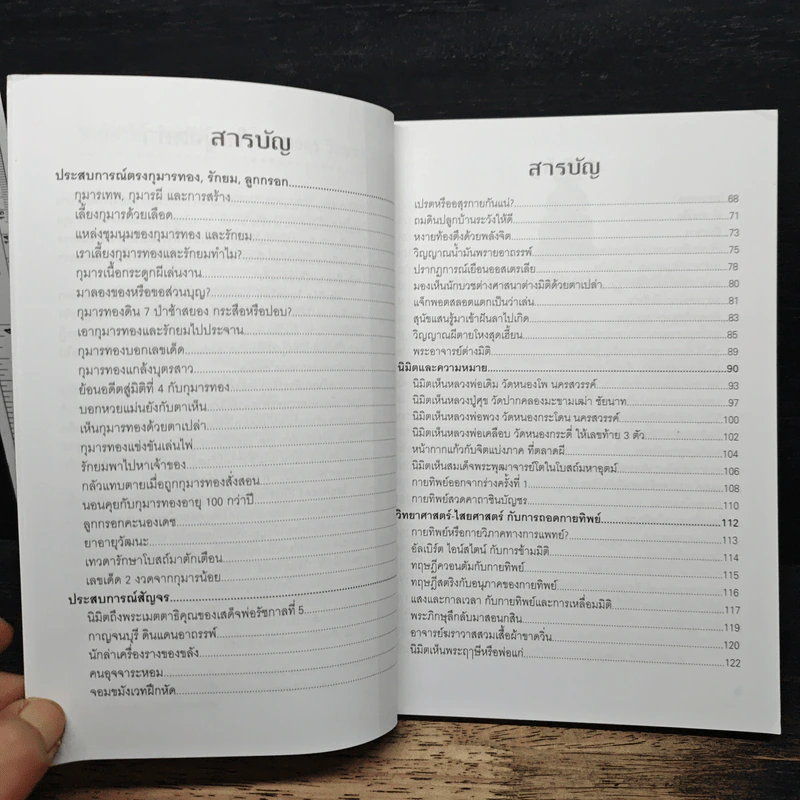 สารบัญ
ประสบการณ์ตรงกุมารทอง, รักยม, ลูกกรอก
กุมารเทพ, กุมารผี และการสร้าง
เลี้ยงกุมารด้วยเลือด
แหล่งชุมนุมของกุมารทอง และรักยม
เราเลี้ยงกุมารทองและรักยมทำไม?
กุมารเนื้อกระดูกผีเล่นงาน
มาลองของหรือขอส่วนบุญ?
กุมารทองดิน 7 ป่าช้าสยอง กระสือหรือปอบ?
เอากุมารทองและรักยมไปประจาน
กุมารทองบอกเลขเด็ด
กุมารทองแกล้งบุตรสาว
ย้อนอดีตสู่มิติที่ 4 กับกุมารทอง
บอกหวยแม่นยังกับตาเห็น
เห็นกุมารทองด้วยตาเปล่า
กุมารทองแข่งขันเล่นไฟ
รักยมพาไปหาเจ้าของ
กลัวแทบตายเมื่อถูกกุมารทองสั่งสอน
นอนคุยกับกุมารทองอายุ 100 กว่าปี
ลูกกรอกคะนองเดช
ยาอายุวัฒนะ
เทวดารักษาโบสถ์มาตักเตือน
เลขเด็ด 2 งวดจากกุมารน้อย
ประสบการณ์สัญจร
นิมิตถึงพระเมตตาธิคุณของเสด็จพ่อรัชกาลที่ 5
กาญจนบุรี ดินแดนอาถรรพ์
นักล่าเครื่องรางของขลัง
คนอุจจาระหอม
จอมขมังเวทฝึกหัด
สารบัญ
เปรตหรืออสุรกายกันแน่? 68
ถมดินปลูกบ้านระวังให้ดี 71
หงายท้องตึงด้วยพลังจิต 73
วิญญาณน้ำมันพรายอาถรรพ์ 75
ปรากฏการณ์เยือนออสเตรเลีย 78
มองเห็นนักบวชต่างศาสนาต่างมิติด้วยตาเปล่า 80
แจ็กพอตสลอตแตกเป็นว่าเล่น 81
สุนัขแสนรู้มาเข้าฝันลาไปเกิด 83
วิญญาณผีตายโหงสุดเฮี้ยน 85
พระอาจารย์ต่างมิติ 89
นิมิตและความหมาย 90
นิมิตเห็นหลวงพ่อเดิม วัดหนองโพ นครสวรรค์ 93
นิมิตเห็นหลวงปู่ศุข วัดปากคลองมะขามเฒ่า ชัยนาท 97
นิมิตเห็นหลวงพ่อพวง วัดหนองกระโดน นครสวรรค์ 100
นิมิตเห็นหลวงพ่อเคลือบ วัดหนองกระดี่ ให้เลขท้าย 3 ตัว 102
หน้ากากแก้วกับจิตแบ่งภาค ที่ตลาดผี 104
นิมิตเห็นสมเด็จพระพุฒาจารย์โตในโบสถ์มหาอุตม์ 106
กายทิพย์ออกจากร่างครั้งที่ 1 108
กายทิพย์สวดคาถาชินบัญชร 110
วิทยาศาสตร์-ไสยศาสตร์ กับการถอดกายทิพย์ 112
กายทิพย์หรือกายวิภาคทางการแพทย์? 113
อัลเบิร์ต ไอน์สไตน์ กับการข้ามมิติ 114
ทฤษฎีควอนตัมกับกายทิพย์ 115
ทฤษฎีสตริงกับอนุภาคของกายทิพย์ 116
แสงและกาลเวลา กับกายทิพย์และการเหลื่อมมิติ 117
พระภิกษุลึกลับมาสอนกสิน 119
อาจารย์ฆราวาสสวมเสื้อผ้าขาดวิ่น 120
นิมิตเห็นพระฤๅษีหรือพ่อแก่ 122